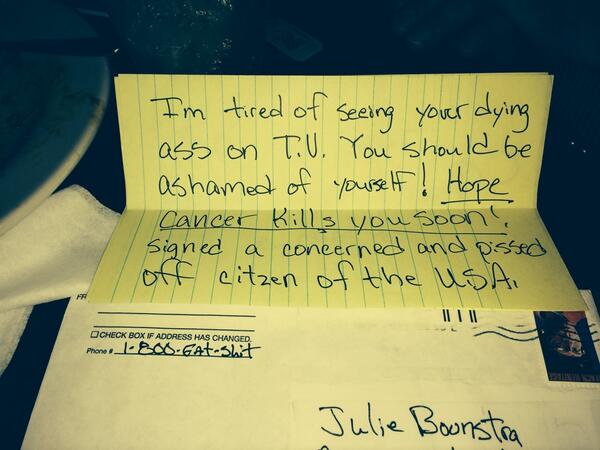 I'm tired of seeing your dying
ass on T.V. You should be
ashamed of yourself! Hope
Cancer kills you soon!
signed a concerned and pissed
off citzen of the USA.
☐ CHECK BOX IF ADDRESS HAS CHANGED.
Phone # 1-800-EAT-Shit
Julie Boonstra